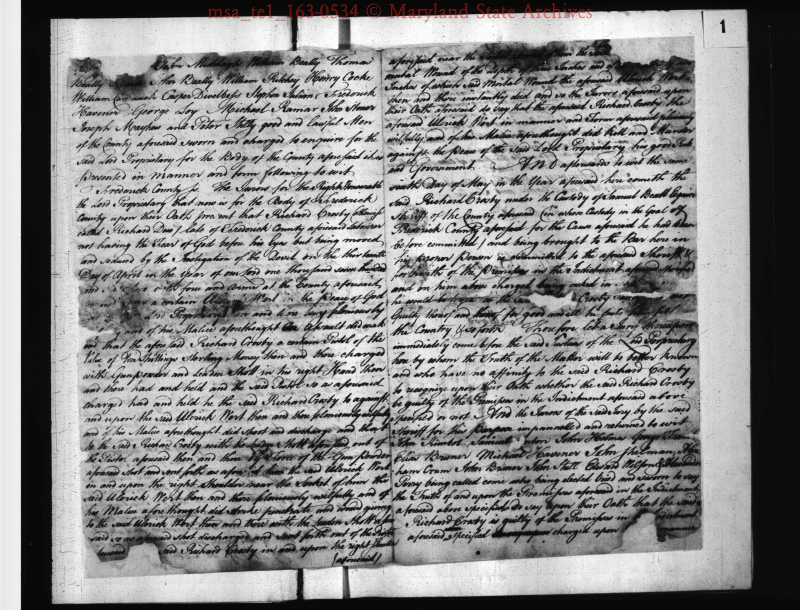 msa_te1_163-0534 © Maryland State Archives
1
John Middagh William Beatty Thomas
Beatty Beatty William Pritchey Henry Cocke
William Casper Devilbess Stephen Julian Frederick
Havenor George Loy Michael Ramar John House
Joseph Mayhew and Peter Stilly good and lawful Men
of the County aforesaid sworn and charged to enquire for the
said Lord Proprietary for the Body of the County aforesaid it was
Presented in manner and form following to wit
Frederick County ss. The Jurors for the Right Honourable
the Lord Proprietary that now is for the Body of Frederick
County upon their Oath present that Richard Crosby otherwise
called Richard Dun late of Frederick County aforesaid Labourer
not having the Fear of God before his Eyes but being moved
and seduced by the Instigation of the Devil on the thirteenth
Day of April in the Year of our Lord one thousand seven hundred
and Force and Arms at the County aforesaid
a certain Ulrick Wort in the Peace of God
Lord Proprietary then and there being feloniously
and of his Malice aforethought an Assault did make
and that the aforesaid Richard Crosby a certain Pistol of the
Value of Ten Shillings Sterling Money then and there charged
with Gunpowder and leaden Shot in his right Hand then
and there had and held and the said Pistol so as aforesaid
charged had and held he the said Richard Crosby to against
and upon the said Ulrick Wort then and there feloniously wilfully
and of his Malice aforethought did shoot and discharge and that
he the said Richard Crosby with the leaden Shot aforesaid out of
the Pistol aforesaid then and there by Force of the Gun powder
aforesaid shot and sent forth as aforesaid him the said Ulrick Wort
in and upon the right Shoulder near the Socket of him the
said Ulrick Wort then and there feloniously wilfully and of
his Malice aforethought did strike penetrate and wound giving
to the said Ulrick Wort then and there with the leaden Shot
said so as aforesaid shot discharged and sent forth out of the Pistol
said Richard Crosby in and upon the right Shoulder
(aforesaid)
aforesaid near the
mortal Wound of the depth of three Inches and of
Inches of which said Mortal Wound the aforesaid Ulrick Wort
then and there instantly died and so the Jurors aforesaid upon
their Oath aforesaid do say that the aforesaid Richard Crosby the
aforesaid Ulrick Wort in manner and Form aforesaid feloniously
wilfully and of his Malice aforethought did Kill and Murder
against the Peace of the said Lord Proprietary his good Rule
and Government. And afterwards to wit the same
Day of May in the Year aforesaid here cometh the
said Richard Crosby under the Custody of Samuel Beall Esquire
Sheriff of the County aforesaid (in whose Custody in the Goal of
Frederick County aforesaid for the Cause aforesaid he had been
before committed) and being brought to the Bar here in
his proper Person is committed to the aforesaid Sheriff &c
forthwith of the Premisses in the Indictment aforesaid
and on him above charged being asked in
he would be tryed in the Crosby
Guilty thereof and thereof for good and ill he puts himself upon
the Country & so forth Therefore let a Jury thereupon
immediately come before the said Justices of the Lord Proprietary
here by whom the Truth of the Matter will be better known
and who have no affinity to the said Richard Crosby
to recognize upon their Oath whether the said Richard Crosby
be guilty of the Premisses in the Indictment aforesaid above
specified or not And the Jurors of the said Jury by the said
Sheriff for this Purpose impannelled and returned to wit
John Samuel John Holmes George
Elias Bruner Michael Havenor John Shelman
Crum John Bruner John Stull Edward
Perry being called come who being elected tried and sworn to say
the Truth of and upon the Premisses aforesaid in the Indictment
aforesaid above Specified do say upon their Oath that the said
Richard Crosby is guilty of the Premisses in
aforesaid specified charged upon